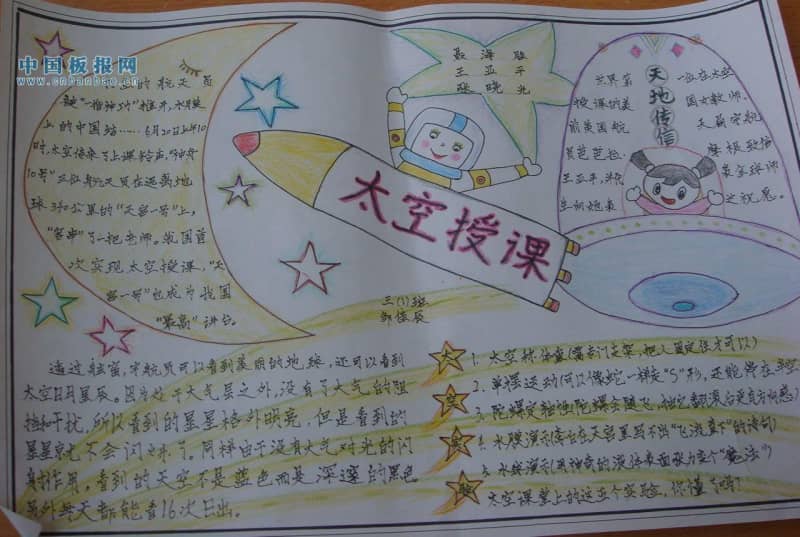 中国板报网
www.cnbanbao.cn
的航天员
上的中国站……6月20日上午10
时,太空传来了上课铃声,"神舟
10号"三位航天员在远离地
球340公里的"天宫一号"上,
"客串"了一把老师。我国首
次实现太空授课,"天
宫一号"也成为我国
"最高"讲台。
聂海胜
王亚平
张晓光
天地传信
世界首 一位在太空
授课的美 国女教师、
前美国航 天局宇航
员芭芭拉· 摩根致信
王亚平,
之祝愿。
太空授课
三(1)班
通过舷窗,宇航员可以看到美丽的地球,还可以看到
太空日月星辰。因为处于大气层之外,没有了大气的阻
挡和干扰,所以看到的星星格外明亮,但是看到的
星星就不会闪了。同样由于没有大气对光的
射作用,看到的天空不是蓝色而是深邃的黑色
另外共天都能看16次日出。
太 1. 太空
空 2. 单摆运动(可以像蛇一样走"S"形,还能停在半空
3. 陀螺定轴
4. 水膜演示(李白在天宫里写不出"飞流直下"的诗句)
5. 水球演示(用神奇的液体表面张力变个"魔法")
太空课堂上的这五个实验,你懂了吗?